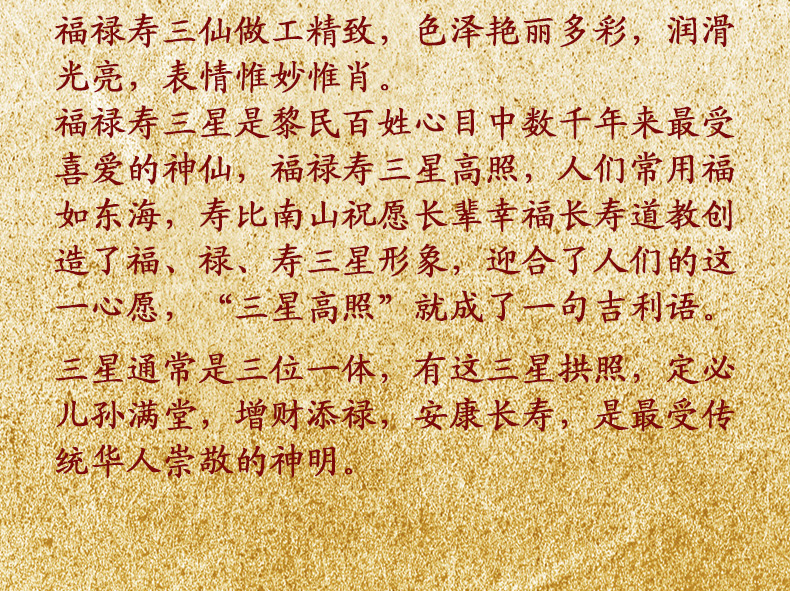 福禄寿三仙做工精致，色泽艳丽多彩，润滑
光亮，表情惟妙惟肖。
福禄寿三星是黎民百姓心目中数千年来最受
喜爱的神仙，福禄寿三星高照，人们常用福
如东海，寿比南山祝愿长辈幸福长寿道教创
造了福、禄、寿三星形象，迎合了人们的这
一心愿，“三星高照”就成了一句吉利语。
三星通常是三位一体，有这三星拱照，定必
儿孙满堂，增财添禄，安康长寿，是最受传
统华人崇敬的神明。